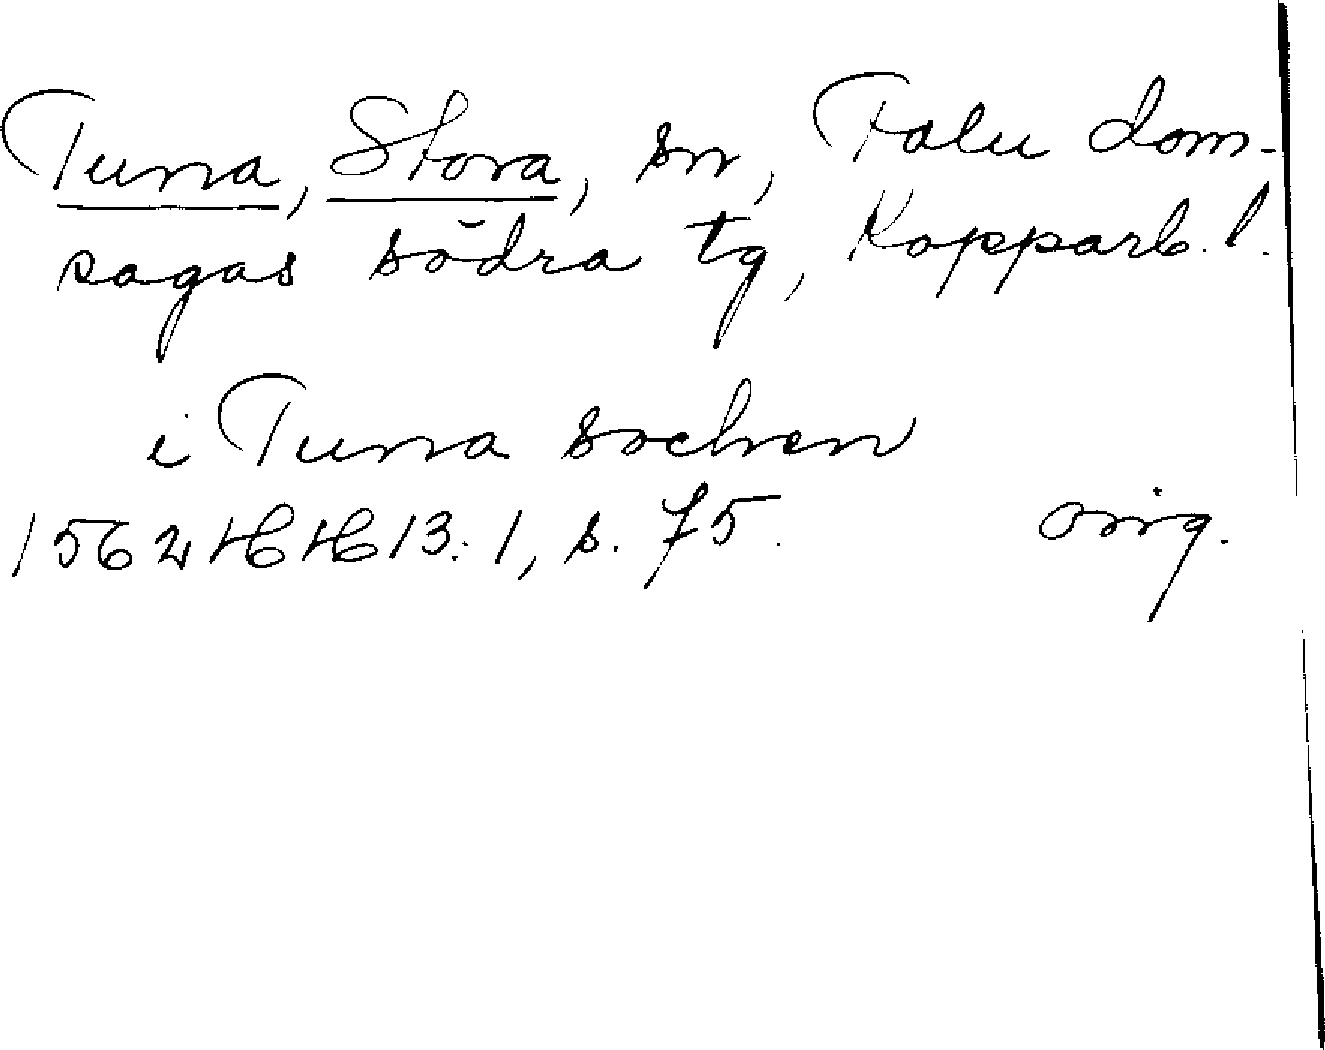 Tuna, Stora, sn, Falu dom-
sagas södra tg, Kopparb. l.
i Tuna sochen
1562 HH 13:1, s. 75. orig.